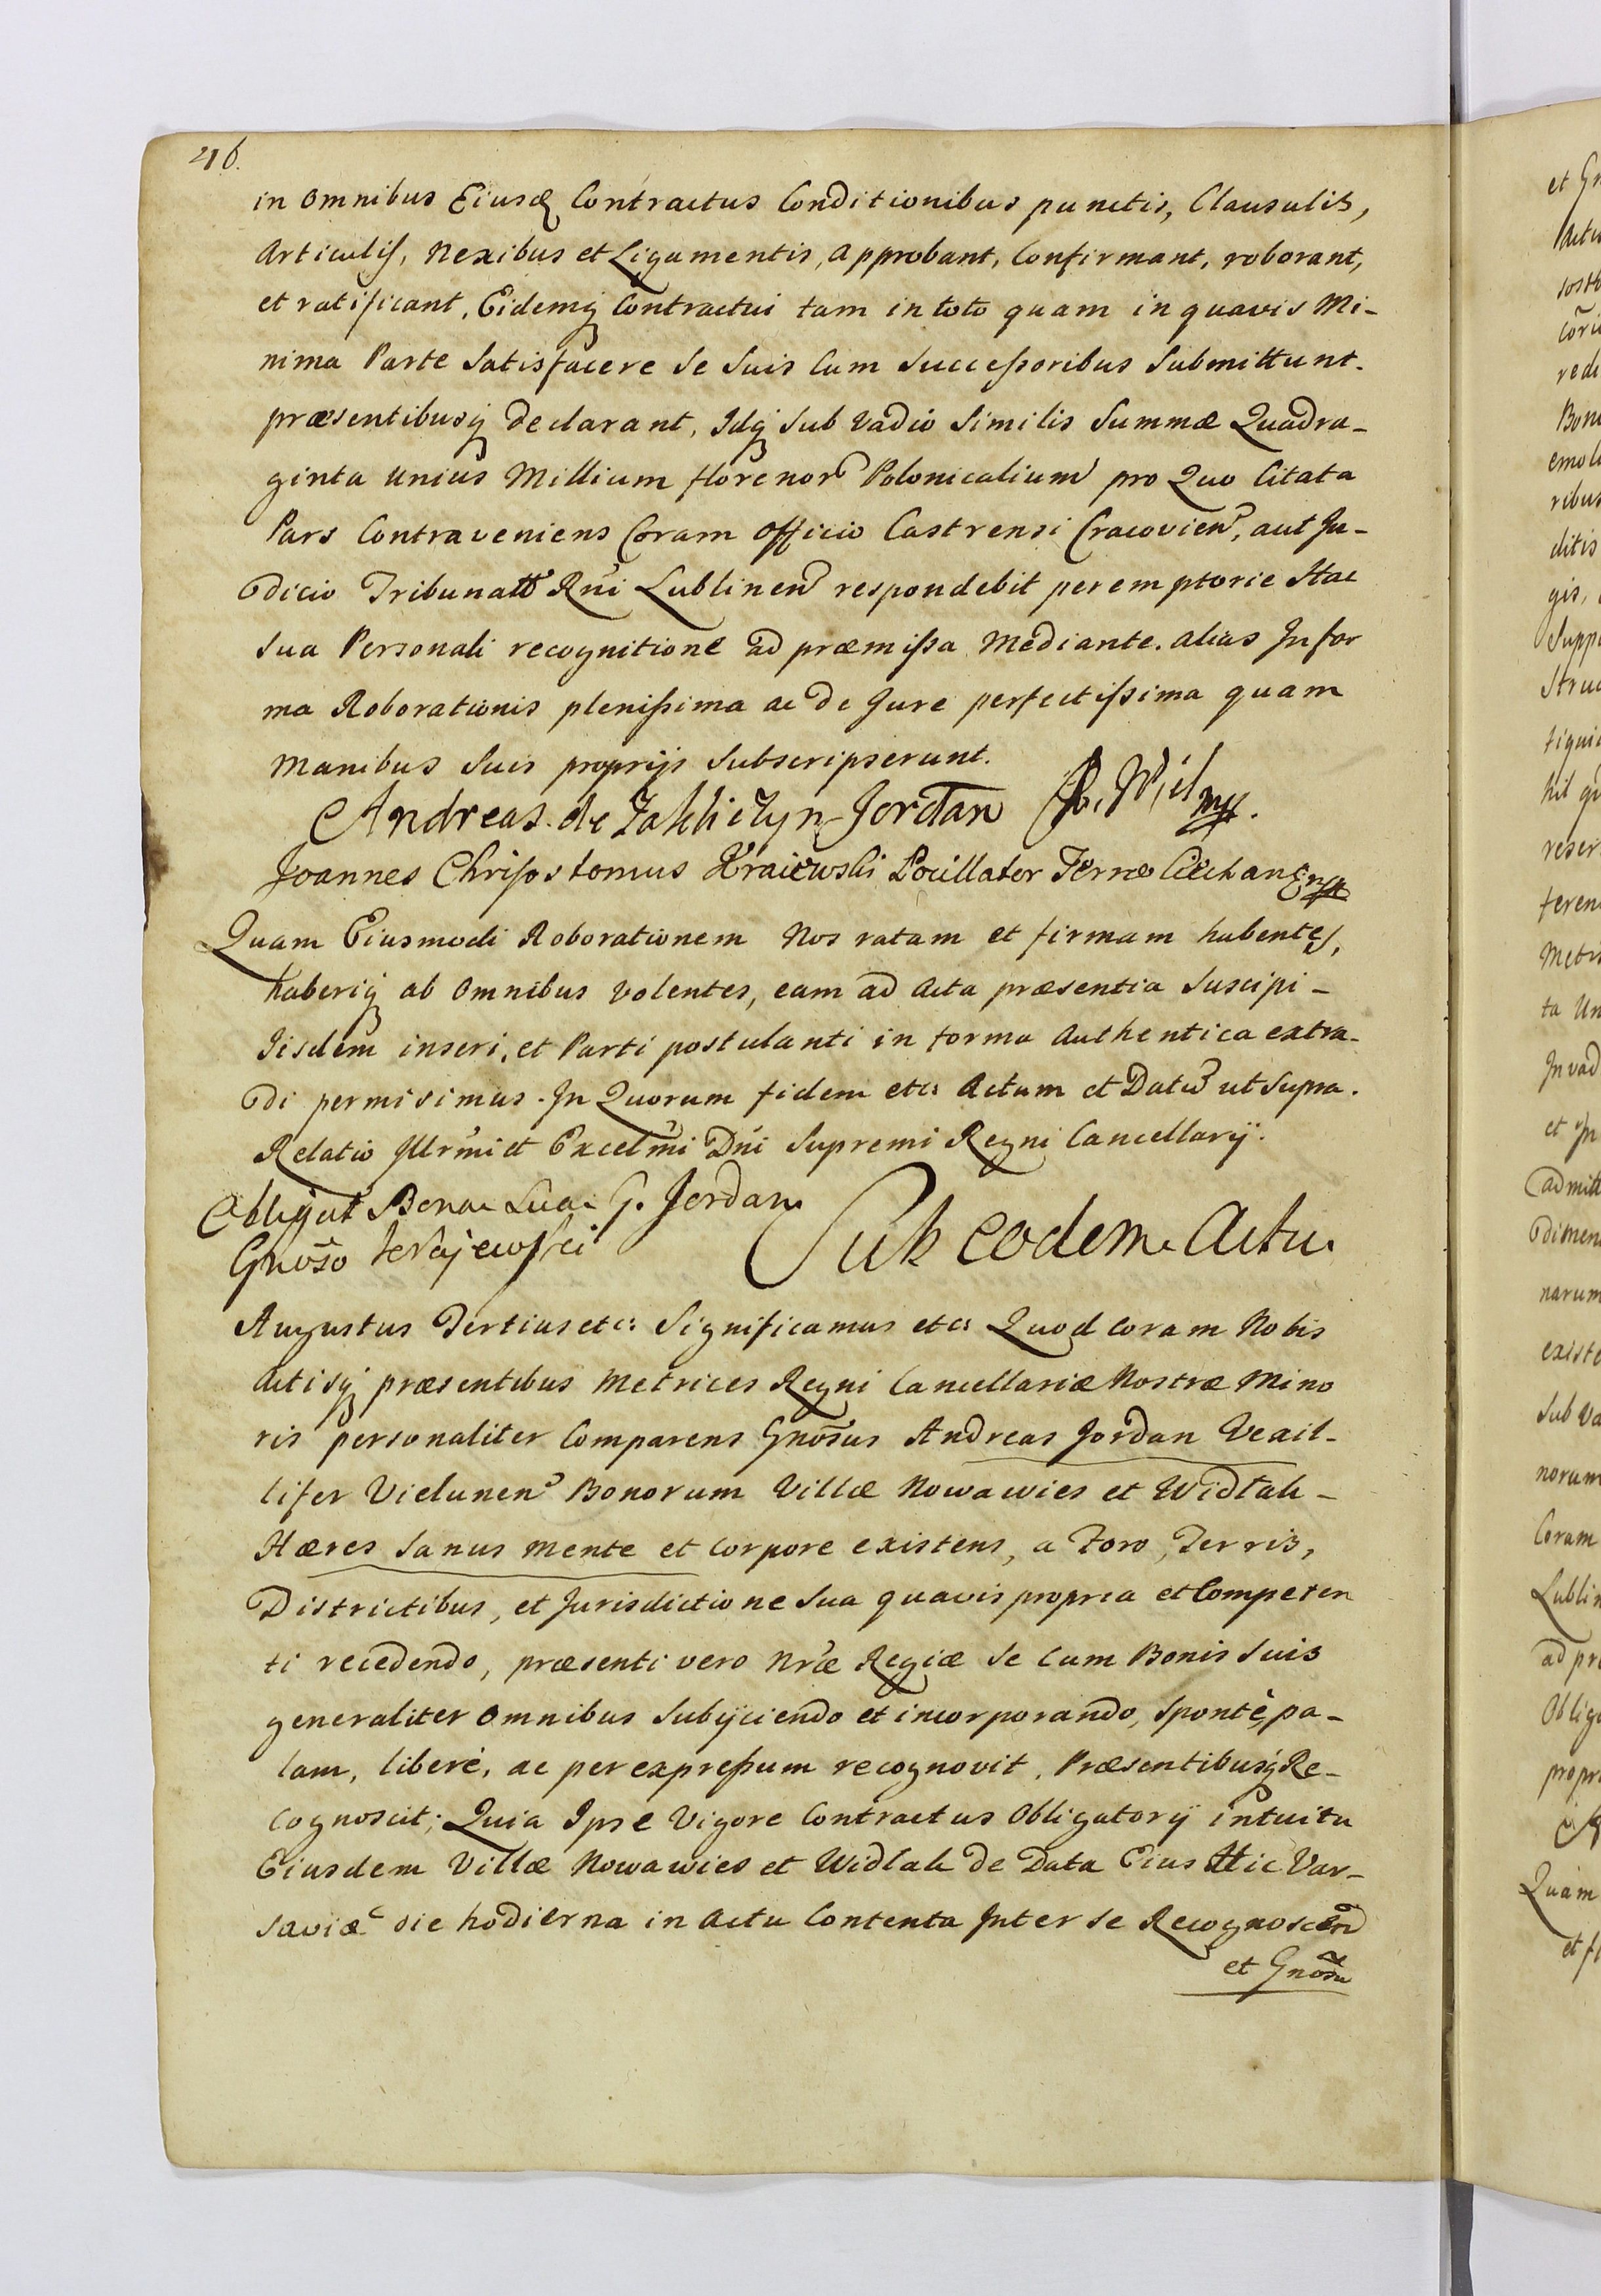 216.
in omnibus Eiusd Contractus Conditionibus punctis, Clausulis,
Articulis, Nexibus et Ligamentis, approbant, Confirmant, roborant,
et ratificant, Eidemq Contractui tam in toto quam in quavis Mi-
nima Parte Satisfacere Se Suis Cum Successoribus Submittunt.
præsentibusq declarant, Idq Sub Vadio Similis Summæ Quadra-
ginta unius Millium florenor Polonicalium pro Quo Citata
Pars Contraveniens Coram Officio Castrensi Cracovien, aut Ju-
dicio Tribunalit Rńi Lublinen respondebit peremptorie Hac
Sua Personali recognitione ad præmissa Mediante. alias In for
ma Roborationis plenissima ac de Jure perfectissima quam
Manibus Suis proprijs Subscripserunt.
Andreas de Zakliczyn Jordan Ch. Wiel mp.
Joannes Chrisostomus Kraiewski Pocillator Terræ Ciechan mp
Quam Eiusmodi Roborationem Nos ratam et firmam habentes,
haberiq ab Omnibus Volentes, eam ad Acta præsentia Suscipi-
Iisdem inseri, et Parti postulanti in forma Authentica extra-
di permisimus. In Quorum fidem etc: Actum et Datũ ut Supra.
Relatio Illrm̃i et Excelm̃i Dńi Supremi Regni Cancellarij.
Obligat Bona Sua G. Jordan
Gnõso Krajewski
Sub eodem Actu
Augustus Tertius etc: Significamus etc: Quod coram Nobis
Actisq præsentibus Metrices Regni Cancellariæ Nostræ Mino
ris personaliter Comparens Gnõsus Andreas Jordan Vexil-
lifer Vielunen Bonorum Villæ Nowawies et Widlak-
Hæres Sanus mente et corpore existens, a Foro, Terris,
Districtibus, et Jurisdictione Sua quavis propria et Competen
ti recedendo, præsenti vero Nræ Regiæ Se Cum Bonis Suis
generaliter Omnibus Subijciendo et incorporando, Spontè, pa-
lam, liberè, ac per expressum recognovit, Præsentibusq Re-
cognoscit; Quia Ipse Vigore Contractus Obligatorij intuitu
Eiusdem Villæ Nowawies et Widlak de Data Eius Hic Var-
saviæ die hodierna in Actu Contenta Inter Se Recognoscen
et Gnõsu